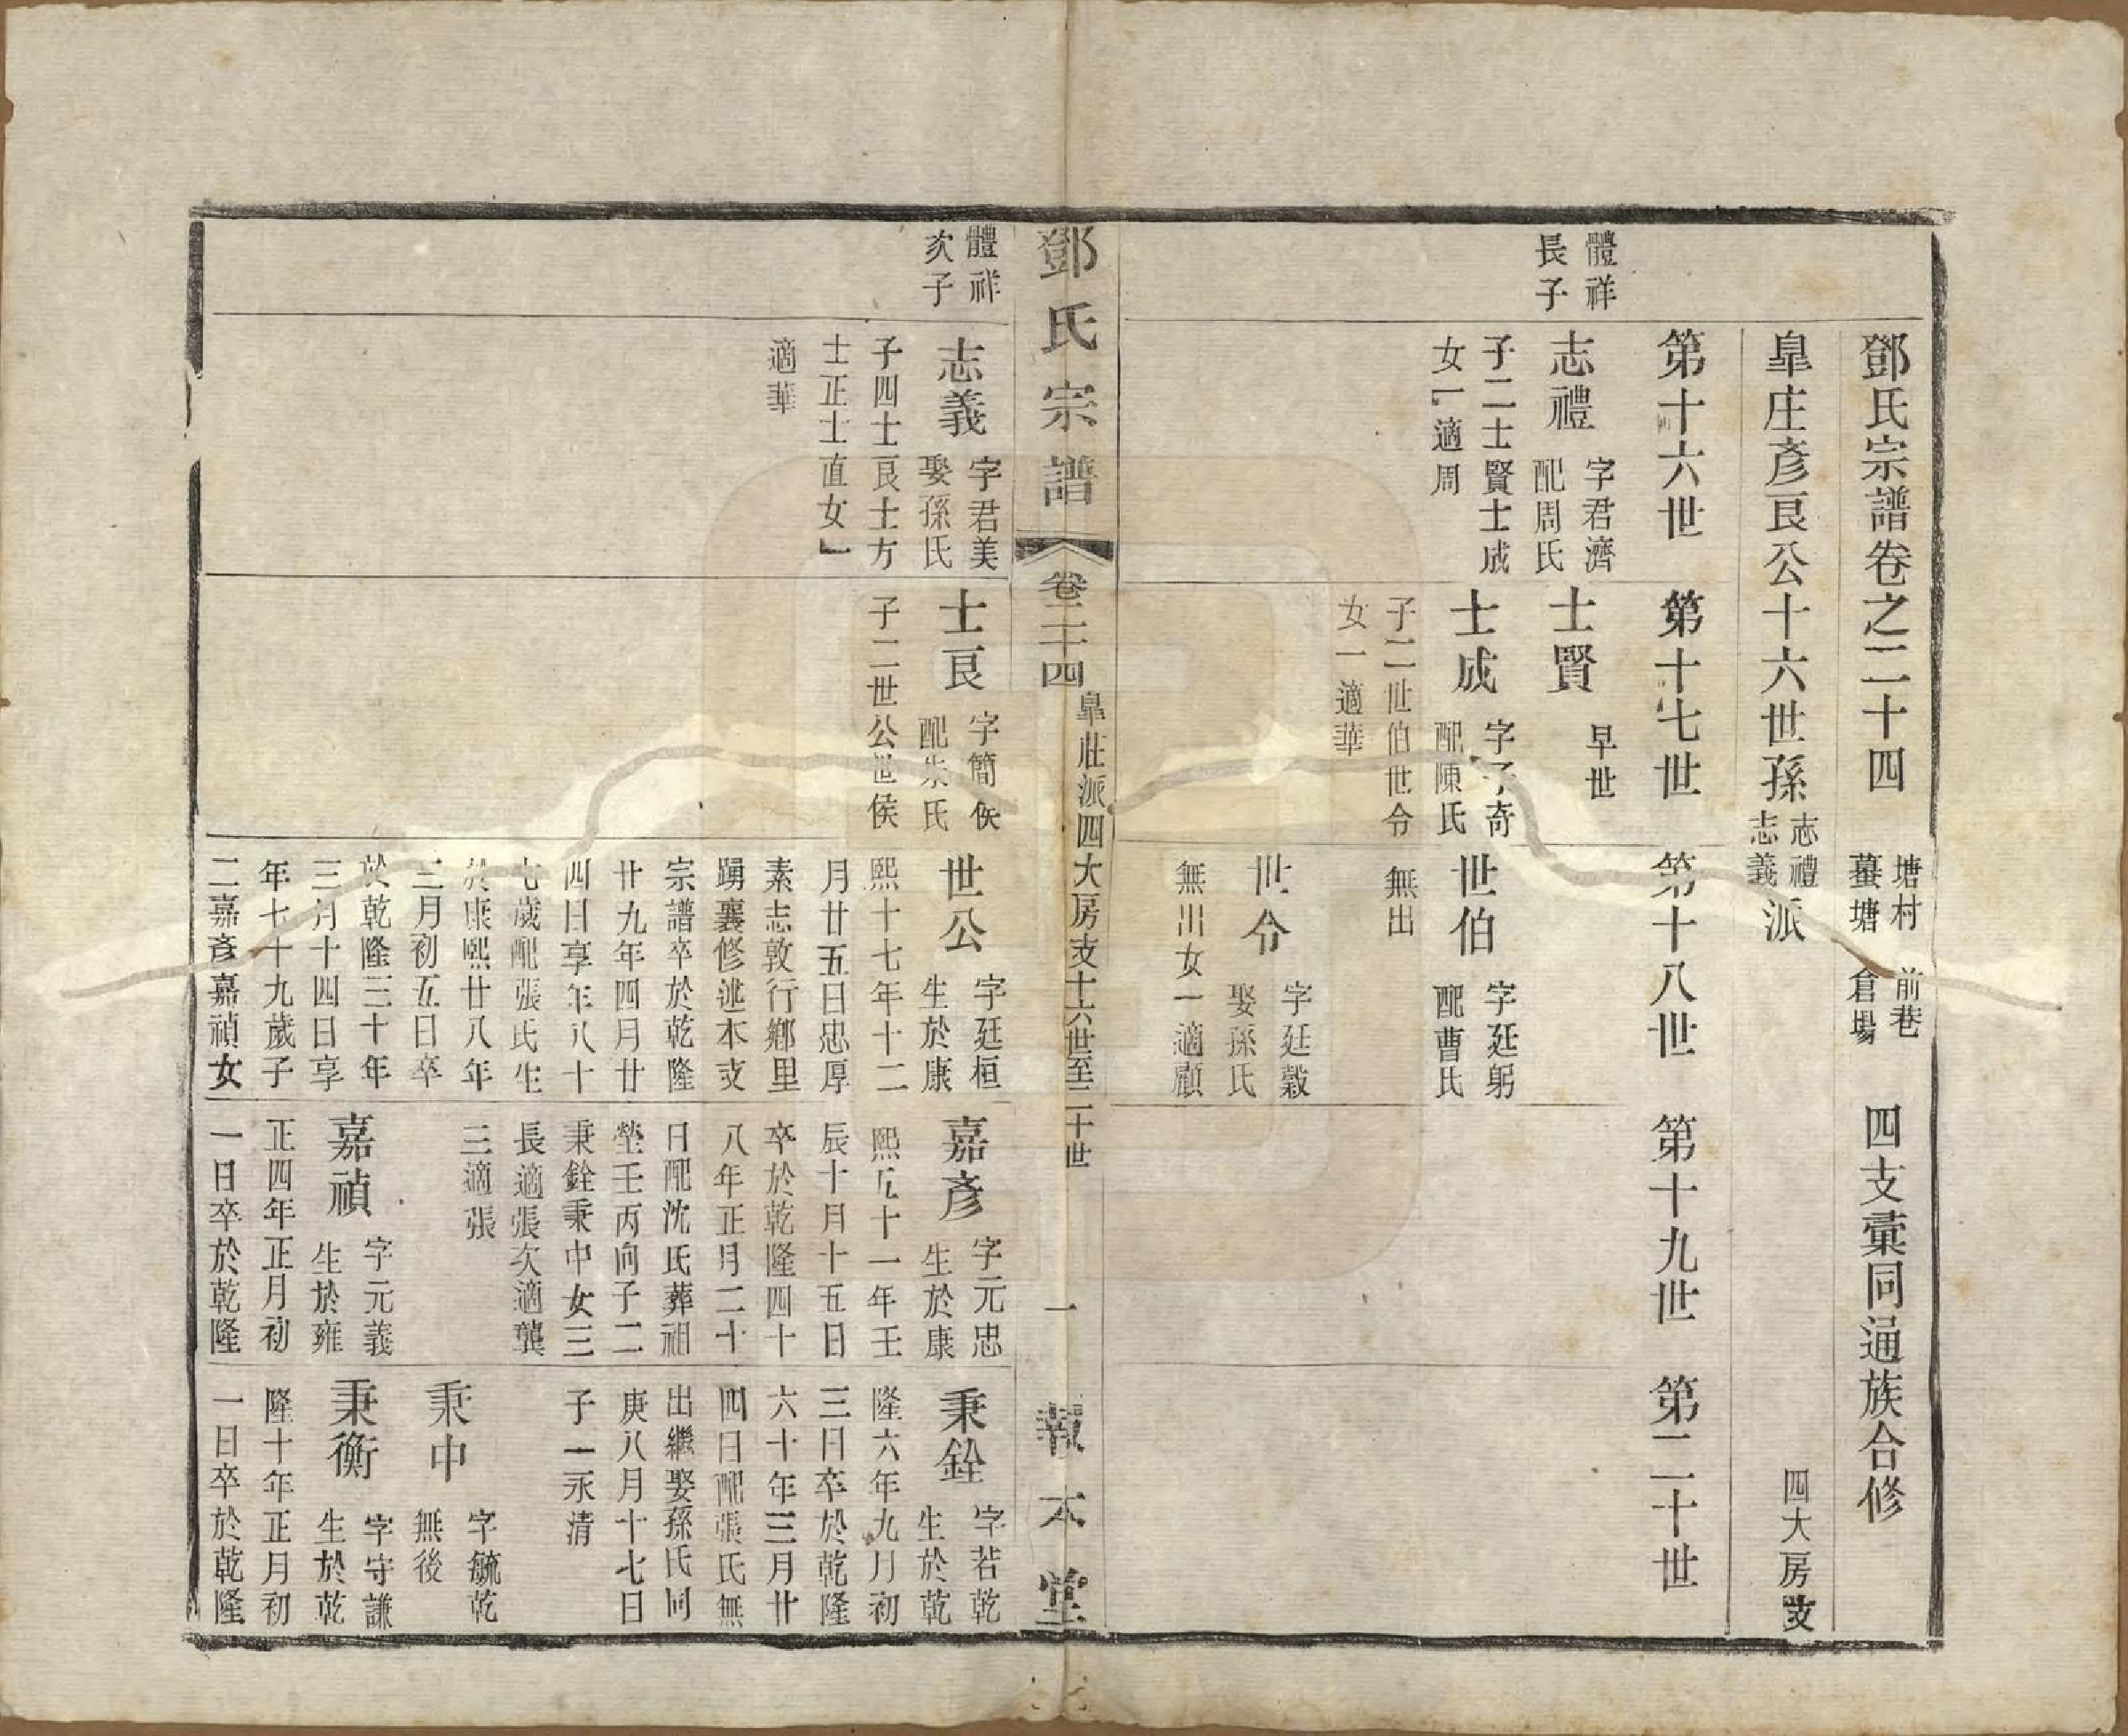 鄧氏宗譜卷之二十四
塘村 前巷
蠆塘 倉場
四支彙同通族合修
皐庄彥良公十六世孫
志禮
志義
派
四大房支
第十六世 第十七世 第十八世 第十九世 第二十世
體祥
長子
志禮
字君濟
配周氏
子二士賢士成
女一適周
士賢
早世
士成
字子奇
配陳氏
子二世伯世令
女一適華
世伯
字廷躬
配曹氏
無出
世令
字廷穀
娶孫氏
無出女一適顧
鄧氏宗譜
卷二十四
皐莊派四大房支十六世至二十世
一
報本堂
體祥
次子
志義
字君美
娶孫氏
子四士良士方
士正士直女一
適華
士良
字簡侯
配朱氏
子二世公世侯
世公
字廷桓
生於康
熙十七年十二
月廿五日忠厚
素志敦行鄉里
踴襄修述本支
宗譜卒於乾隆
廿九年四月廿
四日享年八十
七歲配張氏生
於康熙廿八年
三月初五日卒
於乾隆三十年
三月十四日享
年七十九歲子
二嘉彥嘉禎女
嘉彥
字元忠
生於康
熙五十一年壬
辰十月十五日
卒於乾隆四十
八年正月二十
日配沈氏葬祖
塋壬丙向子二
秉銓秉中女三
長適張次適龔
三適張
嘉禎
字元義
生於雍
正四年正月初
一日卒於乾隆
秉銓
字若乾
生於乾
隆六年九月初
三日卒於乾隆
六十年三月廿
四日配張氏無
出繼娶孫氏同
庚八月十七日
子一永清
秉中
字毓乾
無後
秉衡
字守謙
生於乾
隆十年正月初
一日卒於乾隆